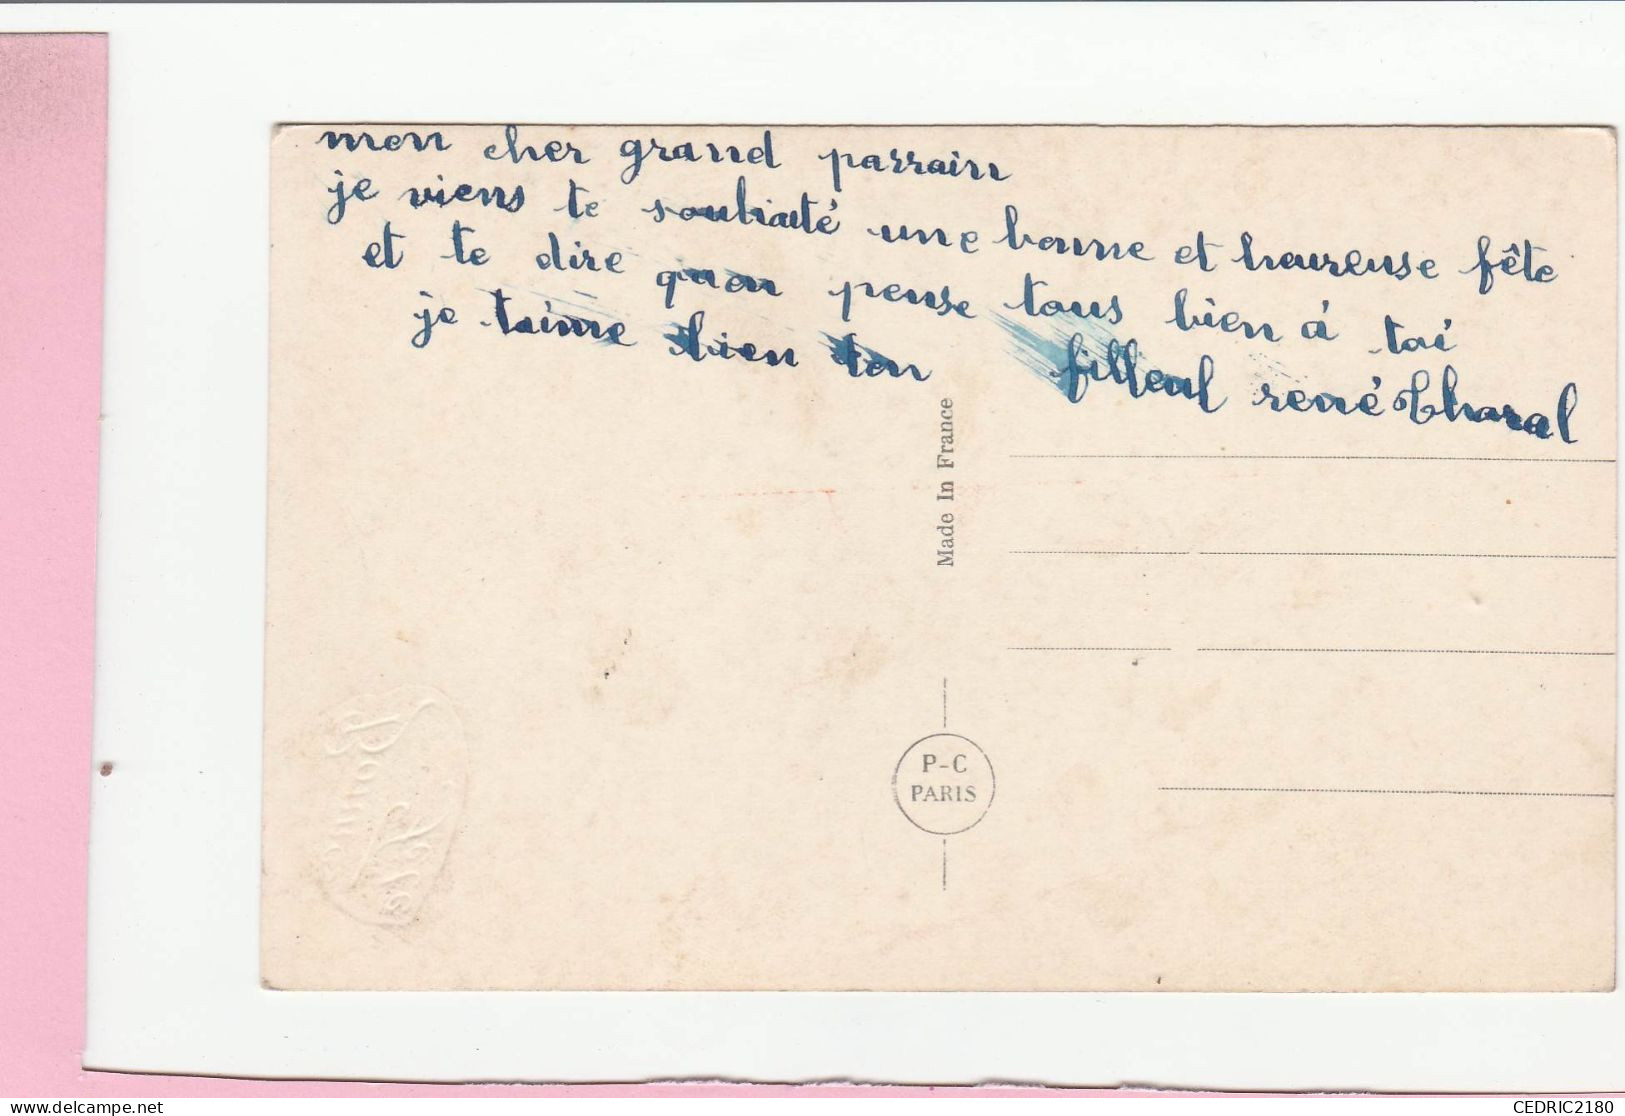 mon cher grand parrain
je viens te souhaité une bonne et heureuse fête
et te dire quon pense tous bien á toi
je taime bien ton filleul rené Tharal
Made In France
P-C
PARIS
CEDRIC2180